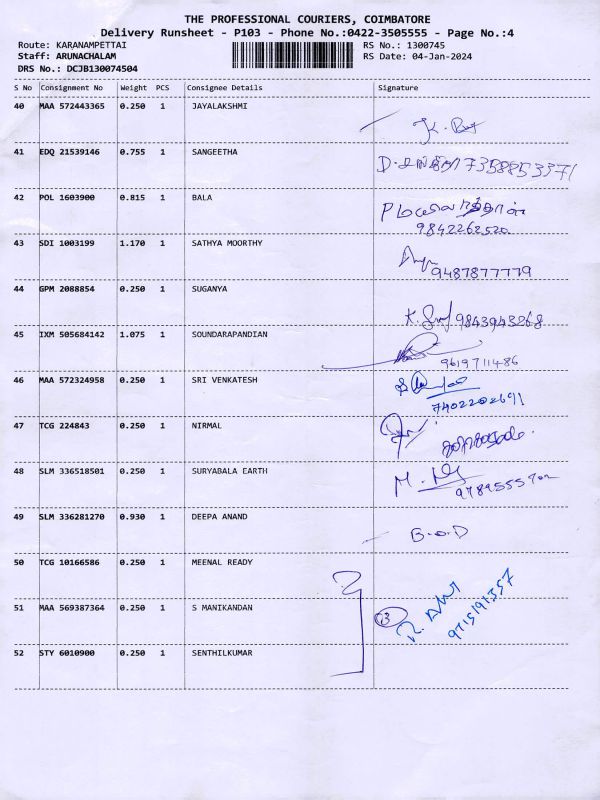 THE PROFESSIONAL COURIERS, COIMBATORE
Delivery Runsheet - P103 - Phone No.:0422-3505555 - Page No.:4
Route: KARANAMPETTAI RS No.: 1300745
Staff: ARUNACHALAM RS Date: 04-Jan-2024
DRS No.: DCJB130074504
S No Consignment No Weight PCS Consignee Details Signature
40 MAA 572443365 0.250 1 JAYALAKSHMI
41 EDQ 21539146 0.755 1 SANGEETHA
7358853371
42 POL 1603900 0.815 1 BALA
9842262520
43 SDI 1003199 1.170 1 SATHYA MOORTHY
9487877779
44 GPM 2088854 0.250 1 SUGANYA
9843943268
45 IXM 505684142 1.075 1 SOUNDARAPANDIAN
9619711486
46 MAA 572324958 0.250 1 SRI VENKATESH
7402202691
47 TCG 224843 0.250 1 NIRMAL
48 SLM 336518501 0.250 1 SURYABALA EARTH
49 SLM 336281270 0.930 1 DEEPA ANAND
B.O.D
50 TCG 10166586 0.250 1 MEENAL READY
51 MAA 569387364 0.250 1 S MANIKANDAN
9715191357
52 STY 6010900 0.250 1 SENTHILKUMAR